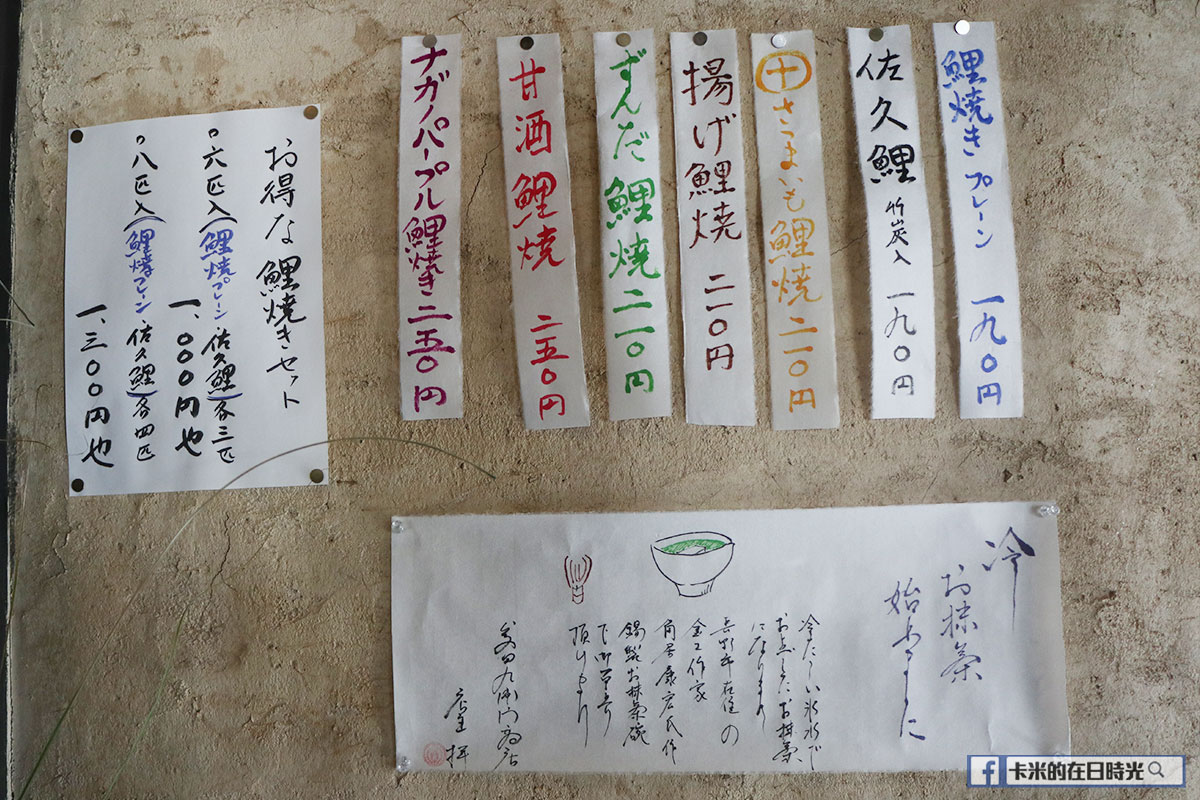 鯉焼きプレーン 一九〇円
佐久鯉 竹炭入 一九〇円
十 さつまいも鯉焼 二一〇円
揚げ鯉焼 二一〇円
ずんだ鯉焼 二一〇円
甘酒鯉焼 二五〇円
ナガノパープル鯉焼き 二五〇円
お得な鯉焼きセット
六匹入(鯉焼プレーン 佐久鯉)各三匹
一、〇〇〇円也
八匹入(鯉焼プレーン 佐久鯉)各四匹
一、三〇〇円也
冷
お抹茶
始めました
冷たーい氷水で
お点てしたお抹茶
になります
長野市在住の
金工作家
角居康宏氏作
錫製お抹茶碗
頂けます
店主 拝
卡米的在日時光